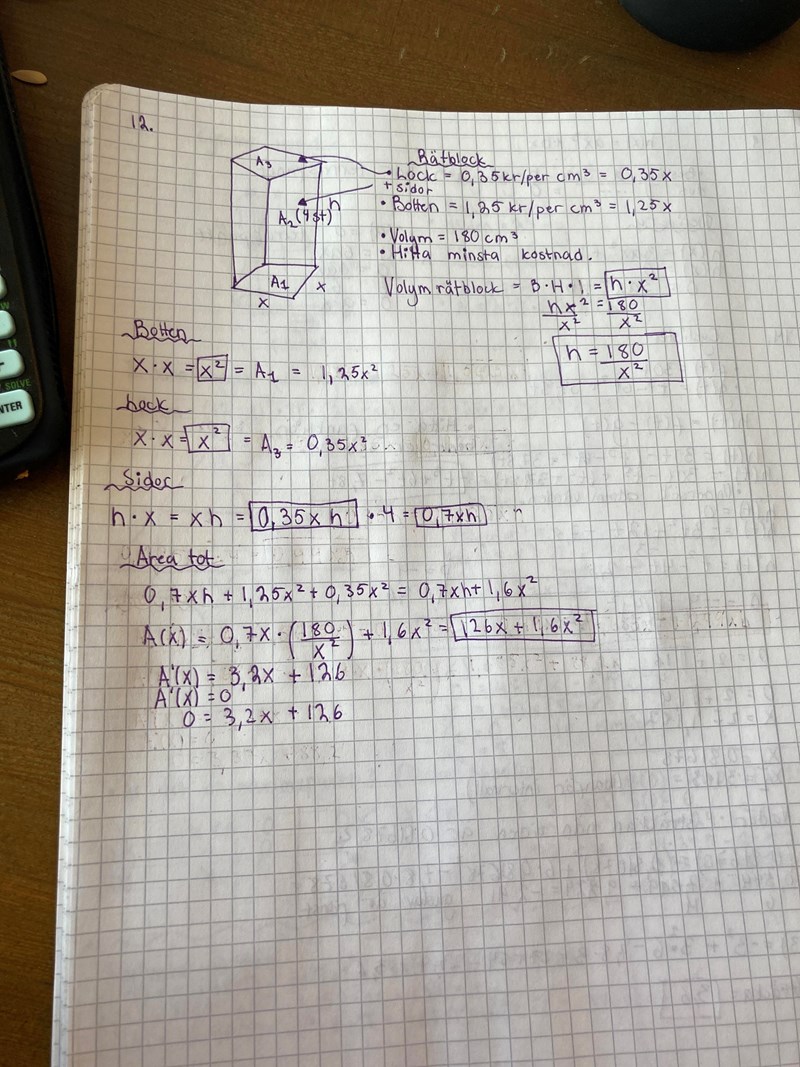 12.
A₃
A₂(4st)
h
A1
x
x
Rätblock
• Lock = 0,35kr/per cm³ = 0,35x
+ sidor
• Botten = 1,25 kr/per cm³ = 1,25x
• Volym = 180 cm³
• Hitta minsta kostnad.
Volym rätblock = B·H·l = h·x²
hx²/x² = 180/x²
h = 180/x²
Botten
x·x = x² = A₁ = 1,25x²
Lock
x·x = x² = A₃ = 0,35x²
Sidor
h·x = xh = 0,35xh · 4 = 0,7xh
Area tot
0,7xh + 1,25x² + 0,35x² = 0,7xh + 1,6x²
A(x) = 0,7x · (180/x²) + 1,6x² = 126x + 1,6x²
A'(x) = 3,2x + 126
A'(x) = 0
0 = 3,2x + 126
SOLVE
NTER